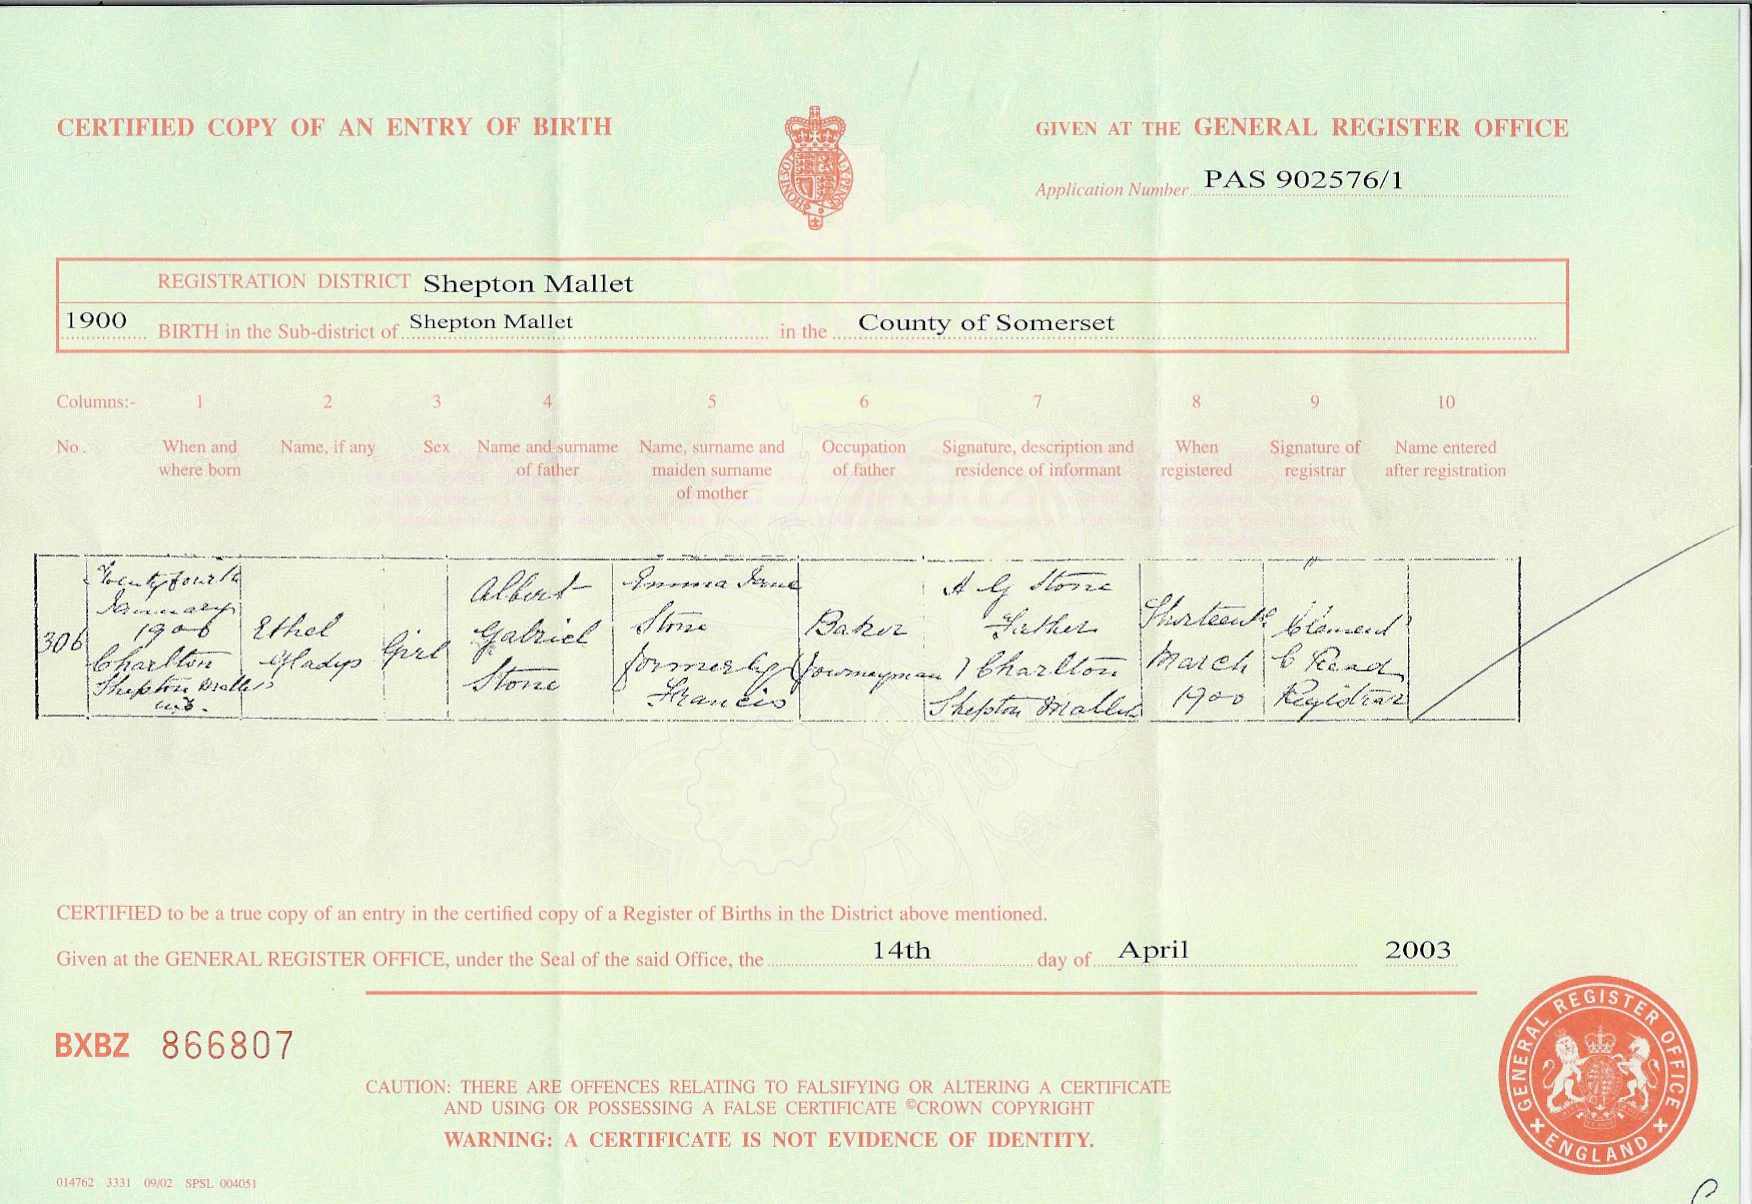 CERTIFIED COPY OF AN ENTRY OF BIRTH
GIVEN AT THE GENERAL REGISTER OFFICE
Application Number PAS 902576/1
REGISTRATION DISTRICT Shepton Mallet
1900 BIRTH in the Sub-district of Shepton Mallet in the County of Somerset
Columns:- 1 2 3 4 5 6 7 8 9 10
No. When and where born Name, if any Sex Name and surname of father Name, surname and maiden surname of mother Occupation of father Signature, description and residence of informant When registered Signature of registrar Name entered after registration
306
Twenty fourth
January
1900
Charlton
Shepton Mallet
Ethel
Gladys
Girl
Albert
Gabriel
Stone
Emma Jane
Stone
formerly
Francis
Baker
Journeyman
A G Stone
Father
1 Charlton
Shepton Mallet
Thirteenth
March
1900
Clement
C Read
Registrar
CERTIFIED to be a true copy of an entry in the certified copy of a Register of Births in the District above mentioned.
Given at the GENERAL REGISTER OFFICE, under the Seal of the said Office, the 14th day of April 2003
BXBZ 866807
CAUTION: THERE ARE OFFENCES RELATING TO FALSIFYING OR ALTERING A CERTIFICATE
AND USING OR POSSESSING A FALSE CERTIFICATE ©CROWN COPYRIGHT
WARNING: A CERTIFICATE IS NOT EVIDENCE OF IDENTITY.
GENERAL REGISTER OFFICE
ENGLAND
014762 3331 09/02 SPSL 004051